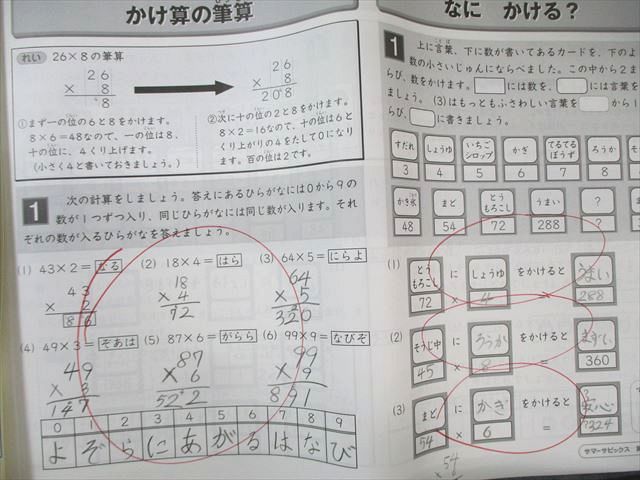 かけ算の筆算
れい 26×8の筆算
26
× 8
8
26
× 8
208
①まず一の位の6と8をかけます。
8×6=48なので、一の位は8、
十の位に、4くり上げます。
(小さく4と書いておきましょう。)
②次に十の位の2と8をかけます。
8×2=16なので、十の位は6と
くり上がりの4をたして0になり
ます。百の位は2です。
1 次の計算をしましょう。答えにあるひらがなには0から9の
数が1つずつ入り、同じひらがなには同じ数が入ります。それ
ぞれの数が入るひらがなを答えましょう。
(1) 43×2=なる
43
× 2
86
(2) 18×4=はら
18
×4
72
(3) 64×5=にらよ
64
× 5
320
(4) 49×3=ぞあは
49
× 3
147
(5) 87×6=がらら
87
×6
522
(6) 99×9=なびぞ
99
×9
891
0 1 2 3 4 5 6 7 8 9
よ ぞ ら に あ が る は な び
なに かける?
1 上に言葉、下に数が書いてあるカードを、下のよ
数の小さいじゅんにならべました。この中から2ま
らび、数をかけます。には数を、には言葉を
ましょう。(3)はもっともふさわしい言葉を から1
らび、に書きましょう。
すだれ しょうゆ いちごシロップ かぎ てるてるぼうず ろうか
3 4 5 6 7 8
かき氷 まど とうもろこし うまい ?
48 54 72 288
(1) とうもろこし に しょうゆ をかけると うまい
72 × 4 288
(2) そうじ中 に ろうか をかけると
45 × 8 = 360
(3) まど に かぎ をかけると 安心
54 × 6 = 324
54
サマーサピックス